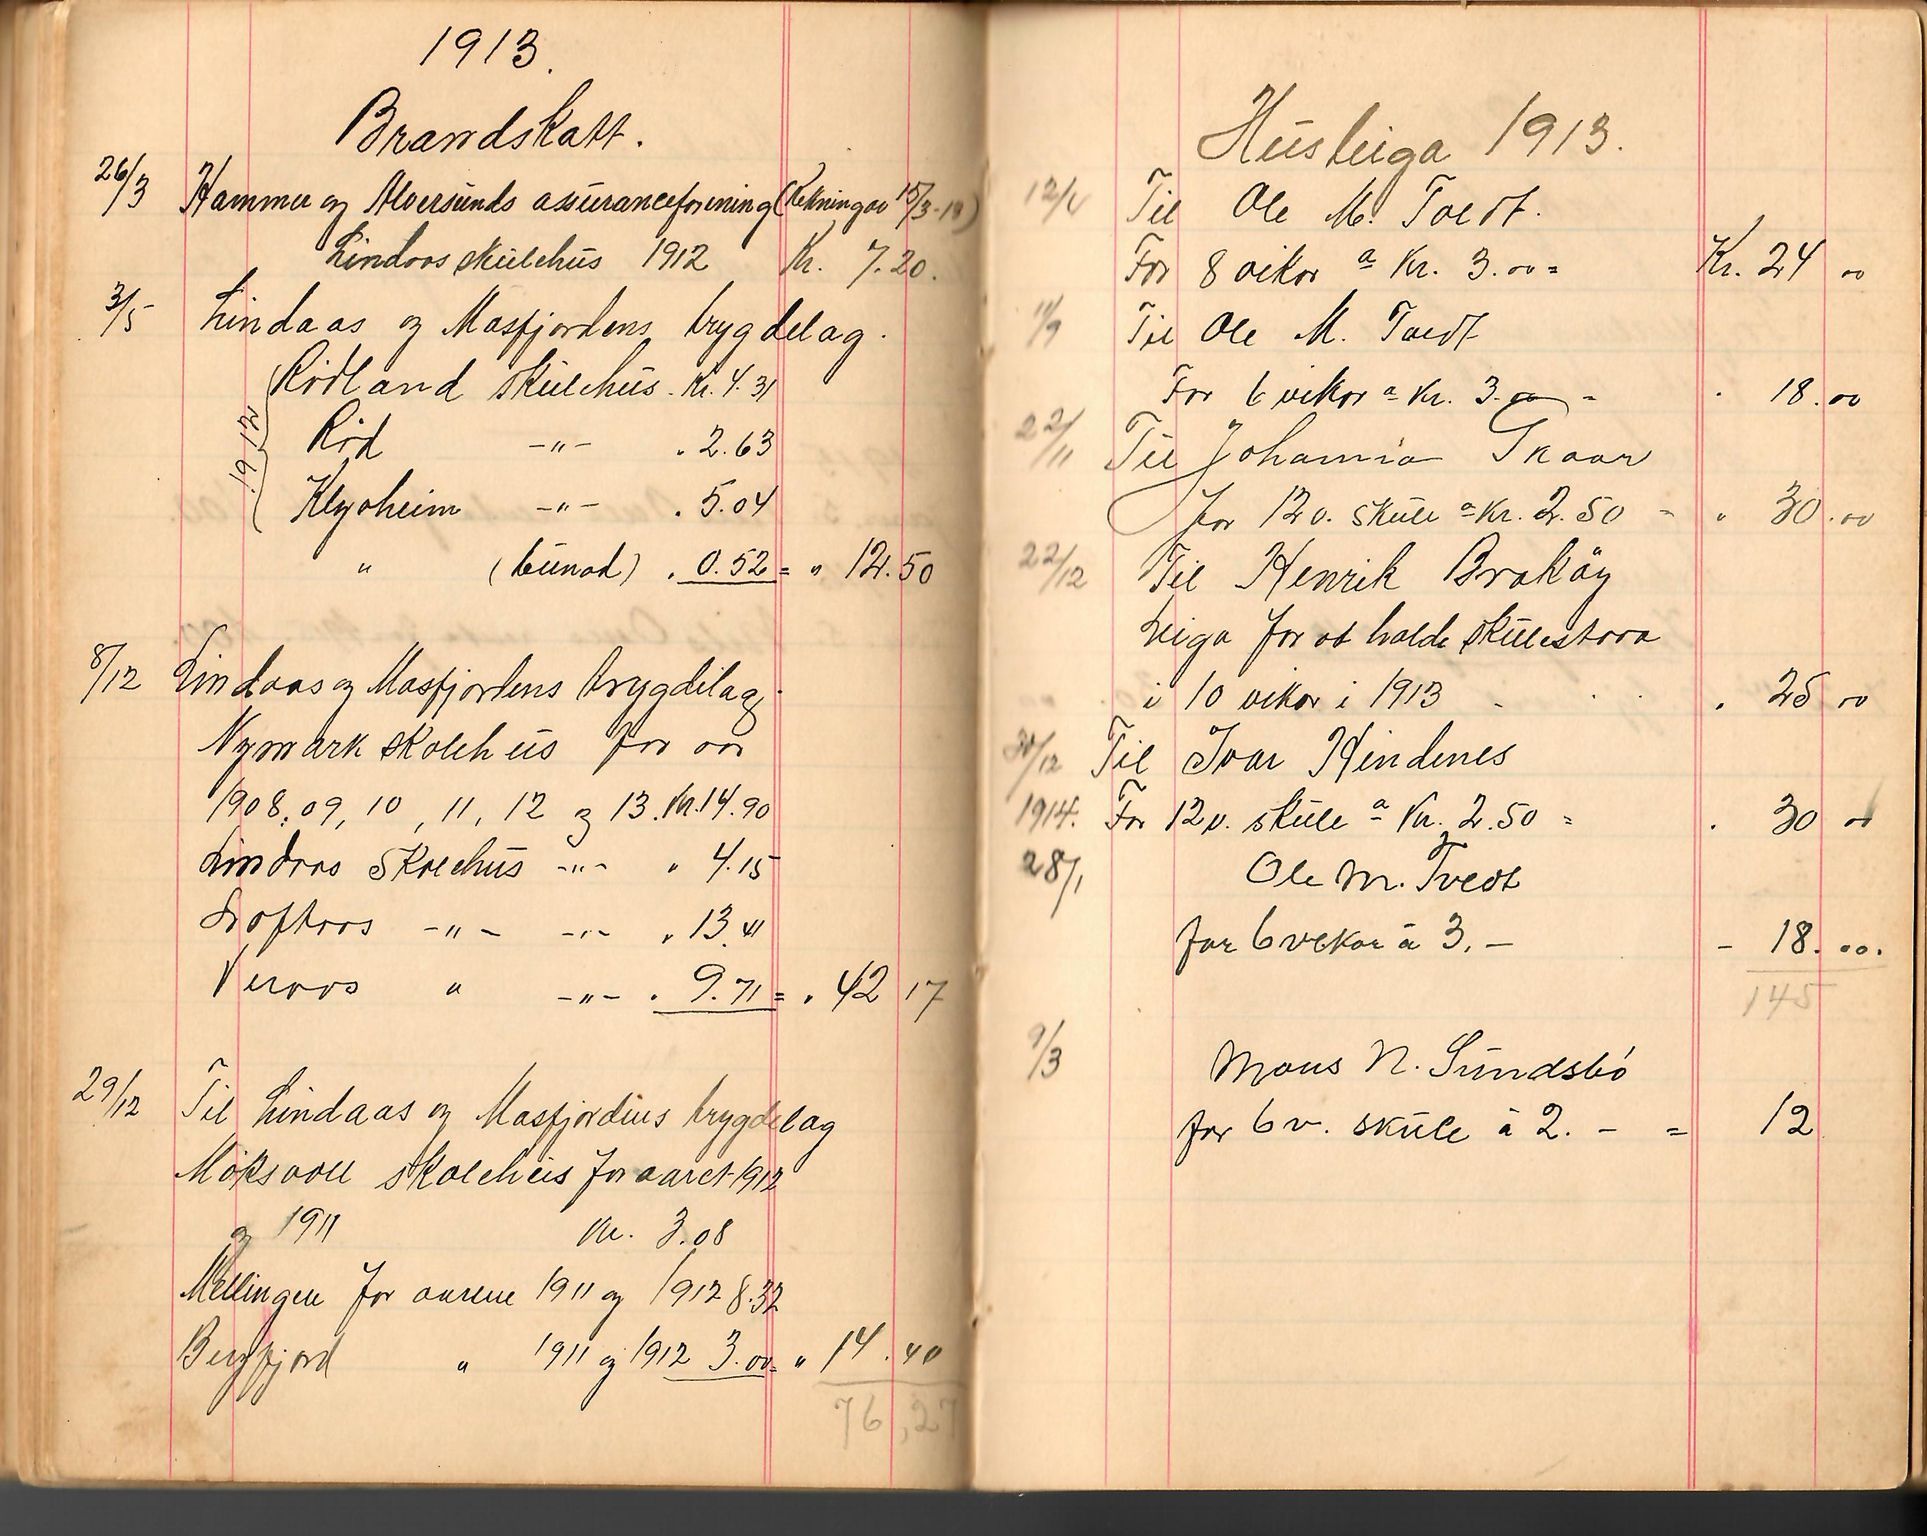 1913.
Brandskatt.
26/3 Hammer og Alversunds assuranceforening (Rekning av 15/3-13)
Lindaas skulehus 1912 Kr. 7.20.
3/5 Lindaas og Masfjordens brygdelag.
1912
Rödland skulehus. Kr. 4.31
Röd -"- . 2.63
Klyvheim -"- . 5.04
" (bunad) . 0.52 = " 12.50
8/12 Lindaas og Masfjordens brygdelag.
Nymark skolehus for aar
1908, 09, 10, 11, 12 og 13. Kr. 14.90
Lindaas skolehus -"- " 4.15
Loftaas -"- -"- " 13.41
Veraas " -"- . 9.71 = " 42 17
29/12 Til Lindaas og Masfjordens brygdelag
Möksvoll skolehus for aaret 1912
og 1911 Kr. 3.08
Mellingen for aarene 1911 og 1912 8.32
Bergfjord " 1911 og 1912 3.00 = " 14.40
76,27
Husleiga 1913.
12/4 Til Ole M. Tvedt.
For 8 vikor a Kr. 3.00 = Kr. 24 00
11/9 Til Ole M. Tvedt
For 6 vikor a Kr. 3.00 - . 18.00
22/11 Til Johannia Skaar
for 12 v. skule a Kr. 2.50 - " 30.00
22/12 Til Henrik Braköy
Leiga for at halde skulestova
i 10 vikor i 1913 . 25 00
30/12 Til Ivar Hindenes
1914. For 12 v. skule a Kr. 2.50 = . 30 00
28/1 Ole M. Tvedt
for 6 vekor à 3.- - 18.00.
145
9/3 Mons N. Sundsbö
for 6 v. skule à 2. - = 12